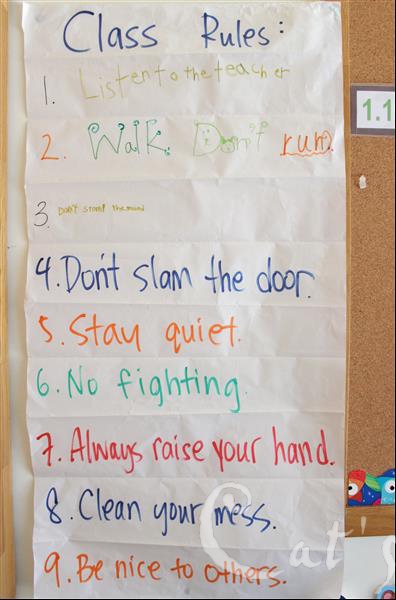 Class Rules:
1. Listen to the teacher
2. Walk. Don't run.
3. Don't stand
4. Don't slam the door.
5. Stay quiet.
6. No fighting.
7. Always raise your hand.
8. Clean your mess.
9. Be nice to others.
1.1
Cat's